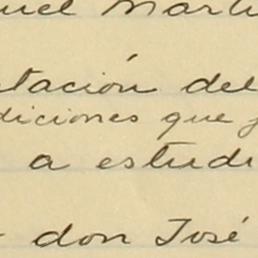 uel Martí
tación del
diciones que
a estudi
don José